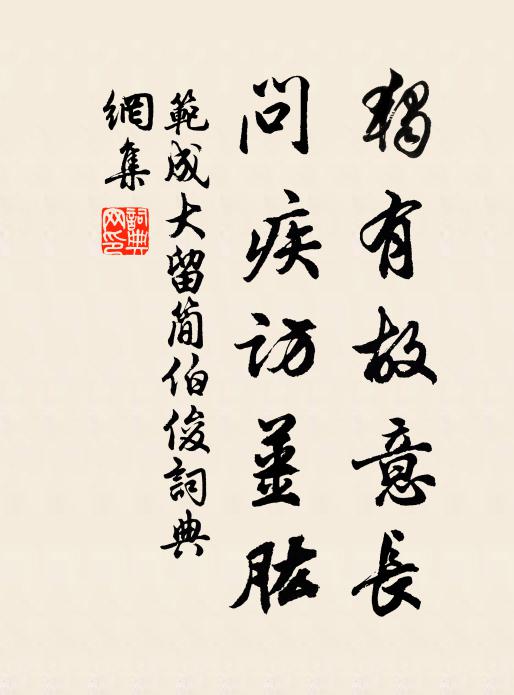 獨有故意長
問疾訪薑肱
範成大留簡伯俊詞典
網集
詞典
网印